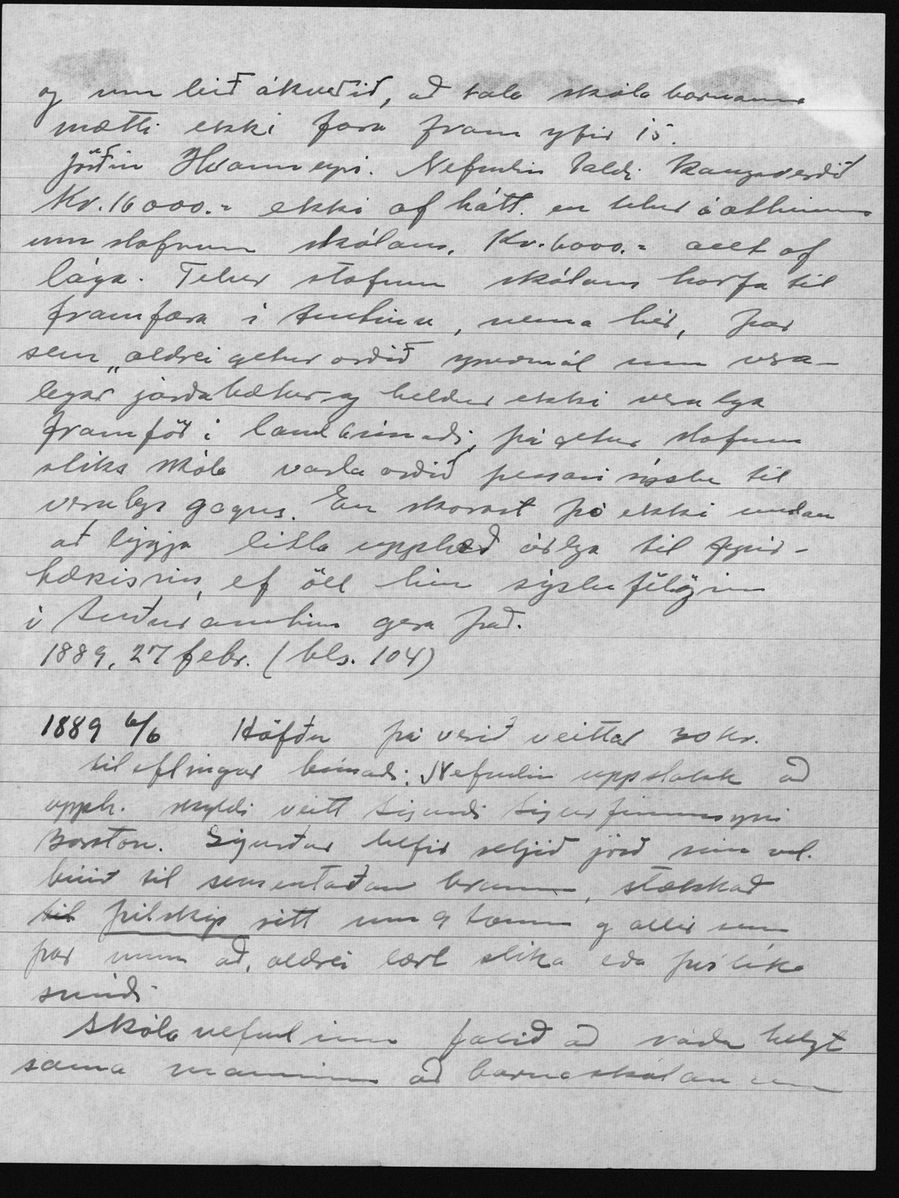 og um leið ákveðið, að tala skólabarnanna
mætti ekki fara fram yfir 15.
Jörðin Hvanneyri. Nefndin taldi kaupverðið
Kr. 16000.- ekki of hátt en telur áætlunina
um stofnun skólans, Kr. 6000.- allt of
lága. Telur stofnun skólans horfa til
framfara í amtinu, nema hér, þar
sem "aldrei getur orðið spursmál um veru-
legar jarðabætur og heldur ekki verulega
framför í landbúnaði, þá getur stofnun
slíks skóla varla orðið þessari sýslu til
verulegs gagns. En skorast þó ekki undan
að leggja litla upphæð árlega til fyrir-
tækisins, ef öll hin sýslufélögin
í Suðuramtinu gera það.
1889, 27 febr. (bls. 104)
1889 6/6 Höfðu þá verið veittar 30 kr.
til eflingar búnaði. Nefndin uppástakk að
upph. skyldi veitt Sigurði Sigurfinnssyni
Sigurður hefir setjið jörð sína vel.
búið til brunn, stækkað
til þilskip sitt um 9 tonn og allir sem
þar unnu að, aldrei lært slíka eða þvílíka
smíði.
Skólanefndinni falið að ráða helzt
sama manninn að barnaskólanum